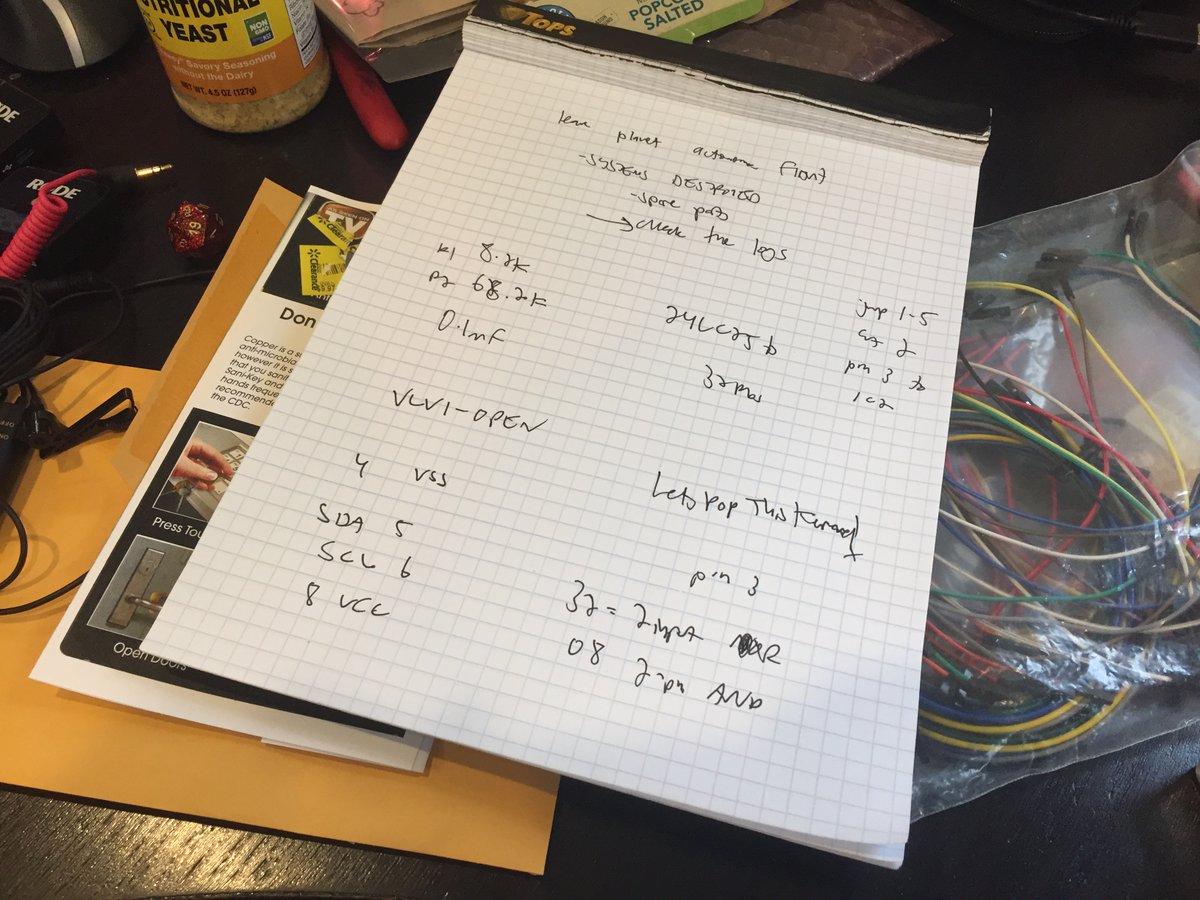 TOPS
POPCO
SALTED
NUTRITIONAL
YEAST
NON
GMO
Savory Seasoning
without the Dairy
NET WT. 4.5 OZ (127g)
RODE
planet
front
-SYSTEMS DESTROYED
-spare parts
→check the logs
R1 8.2K
R2 68.2K
0.1nf
VLV1-OPEN
4 VSS
SDA 5
SCL 6
8 VCC
24LC256
jmp 1-5
cut 2
pin 3 to
1c2
Lets Pop This
pin 3
32 = 2 input OR
08 2-in AND
TV
Clearance
Clearance
Don
Copper is a
anti-microbia
however it is s
that you sanit
Sani-Key and
hands freque
recommende
the CDC.
Press Tou
Open Doors